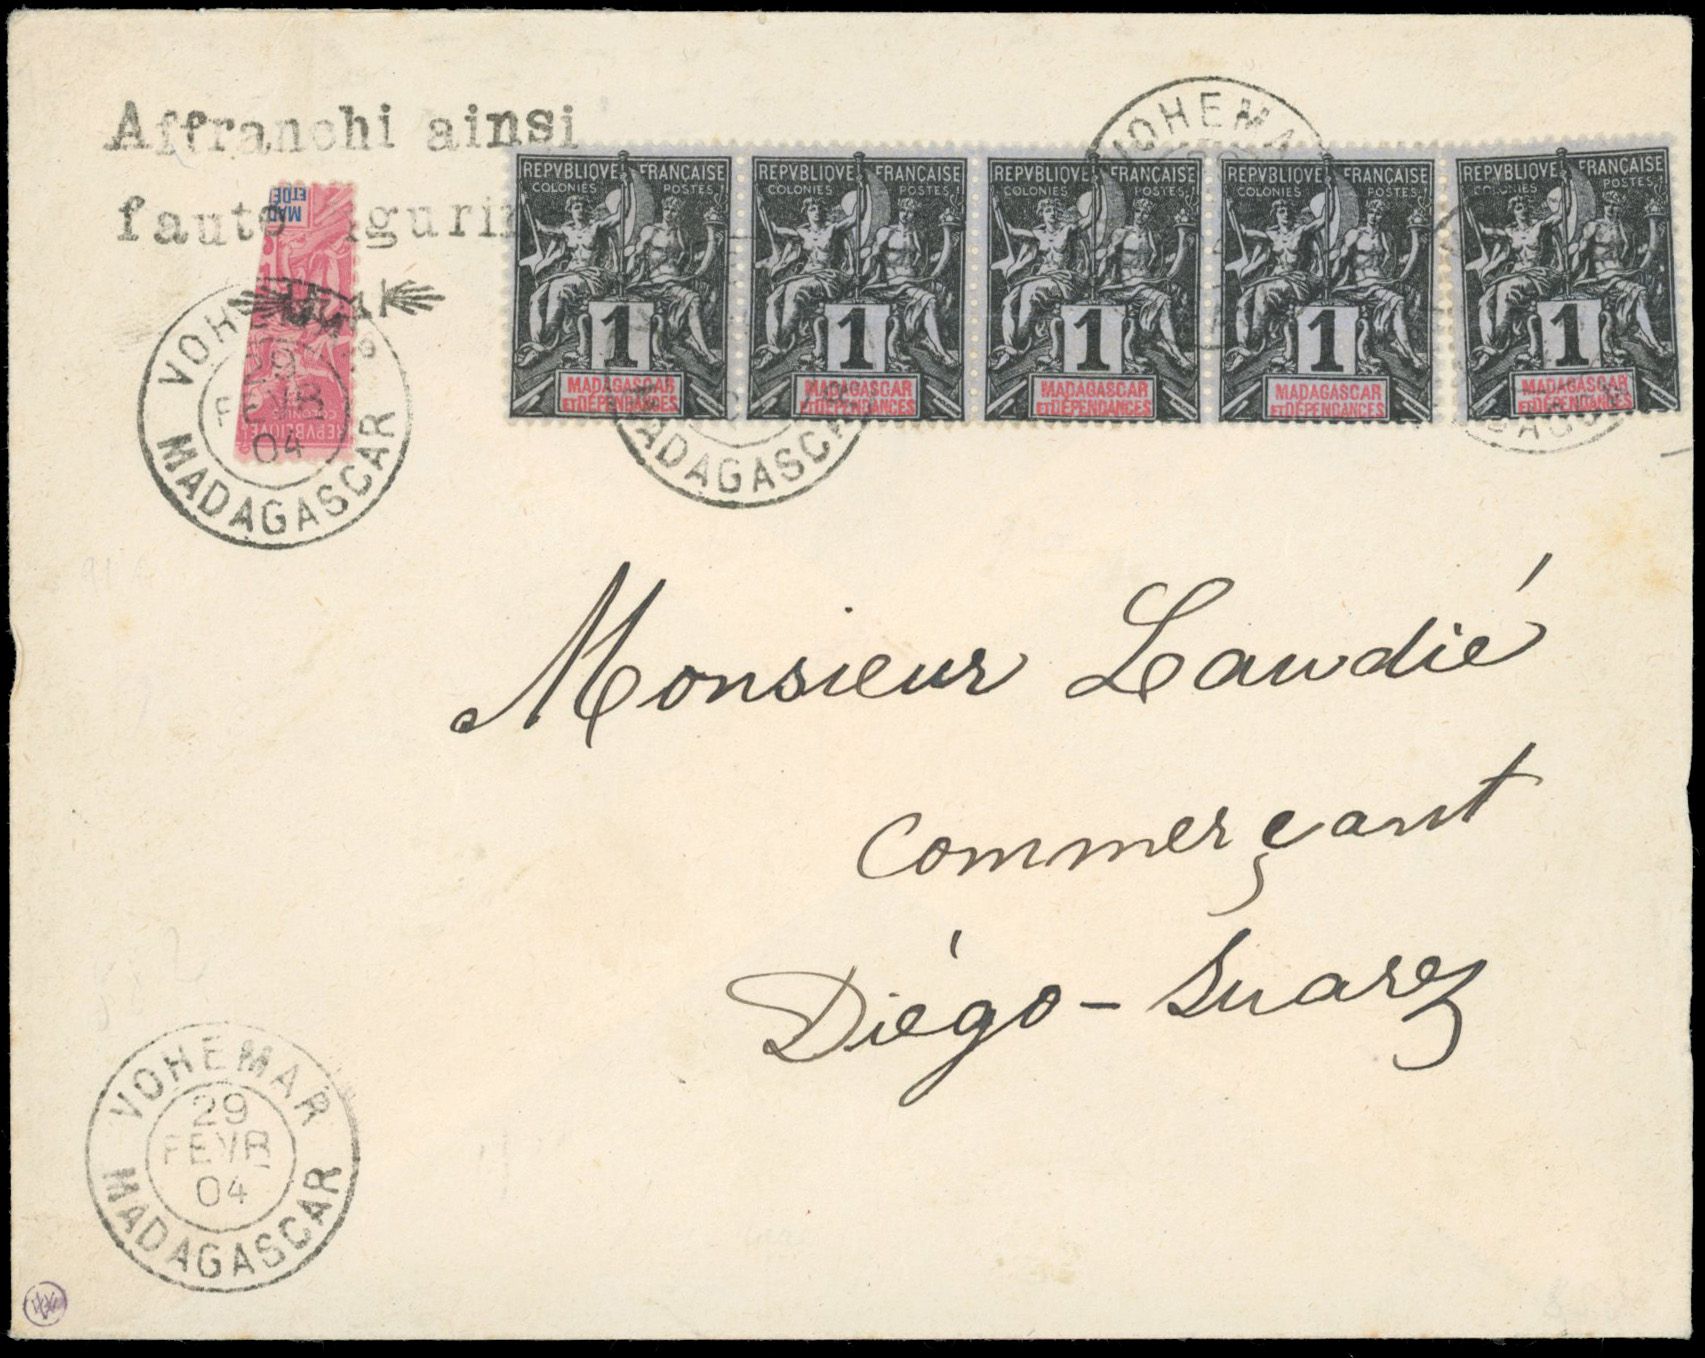 Affranchi ainsi
faute
REPVBLIQVE FRANÇAISE
COLONIES POSTES
1
MADAGASCAR
ET DÉPENDANCES
REPVBLIQVE FRANÇAISE
COLONIES POSTES
1
MADAGASCAR
ET DÉPENDANCES
REPVBLIQVE FRANÇAISE
COLONIES POSTES
1
MADAGASCAR
ET DÉPENDANCES
REPVBLIQVE FRANÇAISE
COLONIES POSTES
1
MADAGASCAR
ET DÉPENDANCES
REPVBLIQVE FRANÇAISE
COLONIES POSTES
1
MADAGASCAR
ET DÉPENDANCES
VOHEMA
MAD
ET DÉ
COLONIES
REPVBLIQVE
29
FEVR
04
MADAGASCAR
MADAGASCAR
Monsieur Laudié
Commerçant
Diégo-Suarez
VOHEMAR
29
FEVR
04
MADAGASCAR